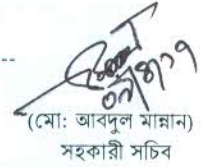 --
(মো: আবদুল মান্নান)
সহকারী সচিব